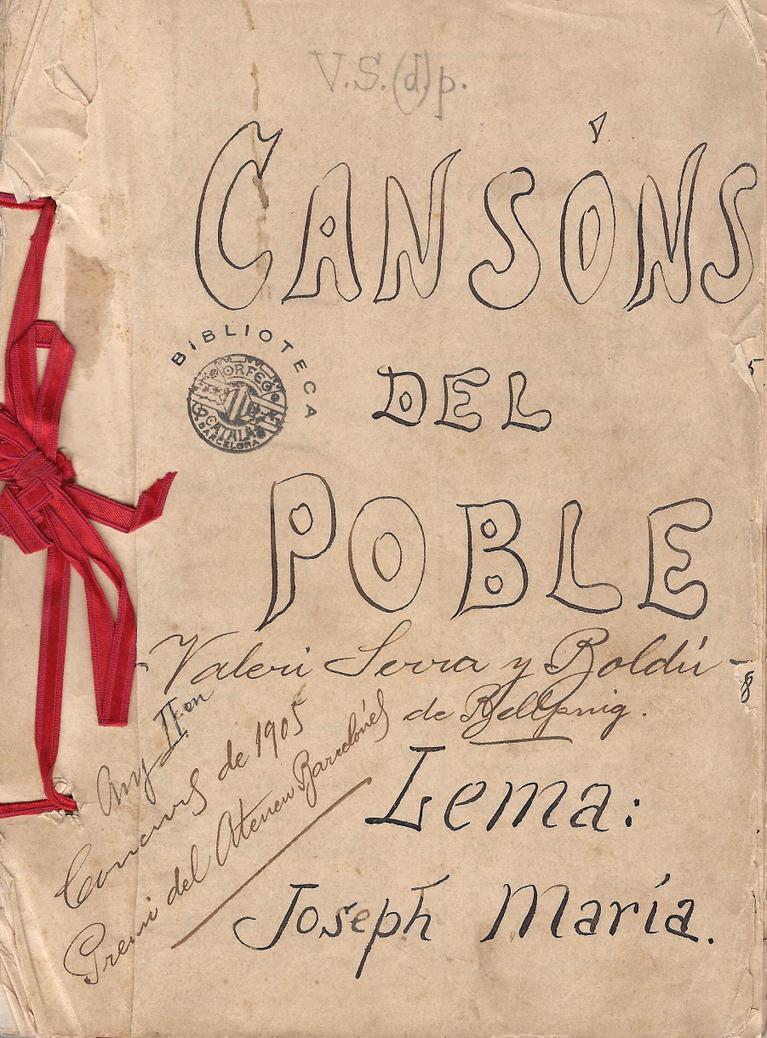 1
V.S.(d)p.
CANSÓNS
BIBLIOTECA
ORFEÓ
CATALÀ
BARCELONA
DEL
POBLE
-Valeri Serra y Boldú-
de Bellpuig.
Any II.on
Concurs de 1905
Premi del Ateneu Barcelonés
Lema:
Joseph María.